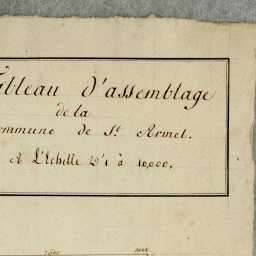 Tableau d'assemblage
de la
Commune de St. Armel.
A L'Echelle D'1 à 10,000.